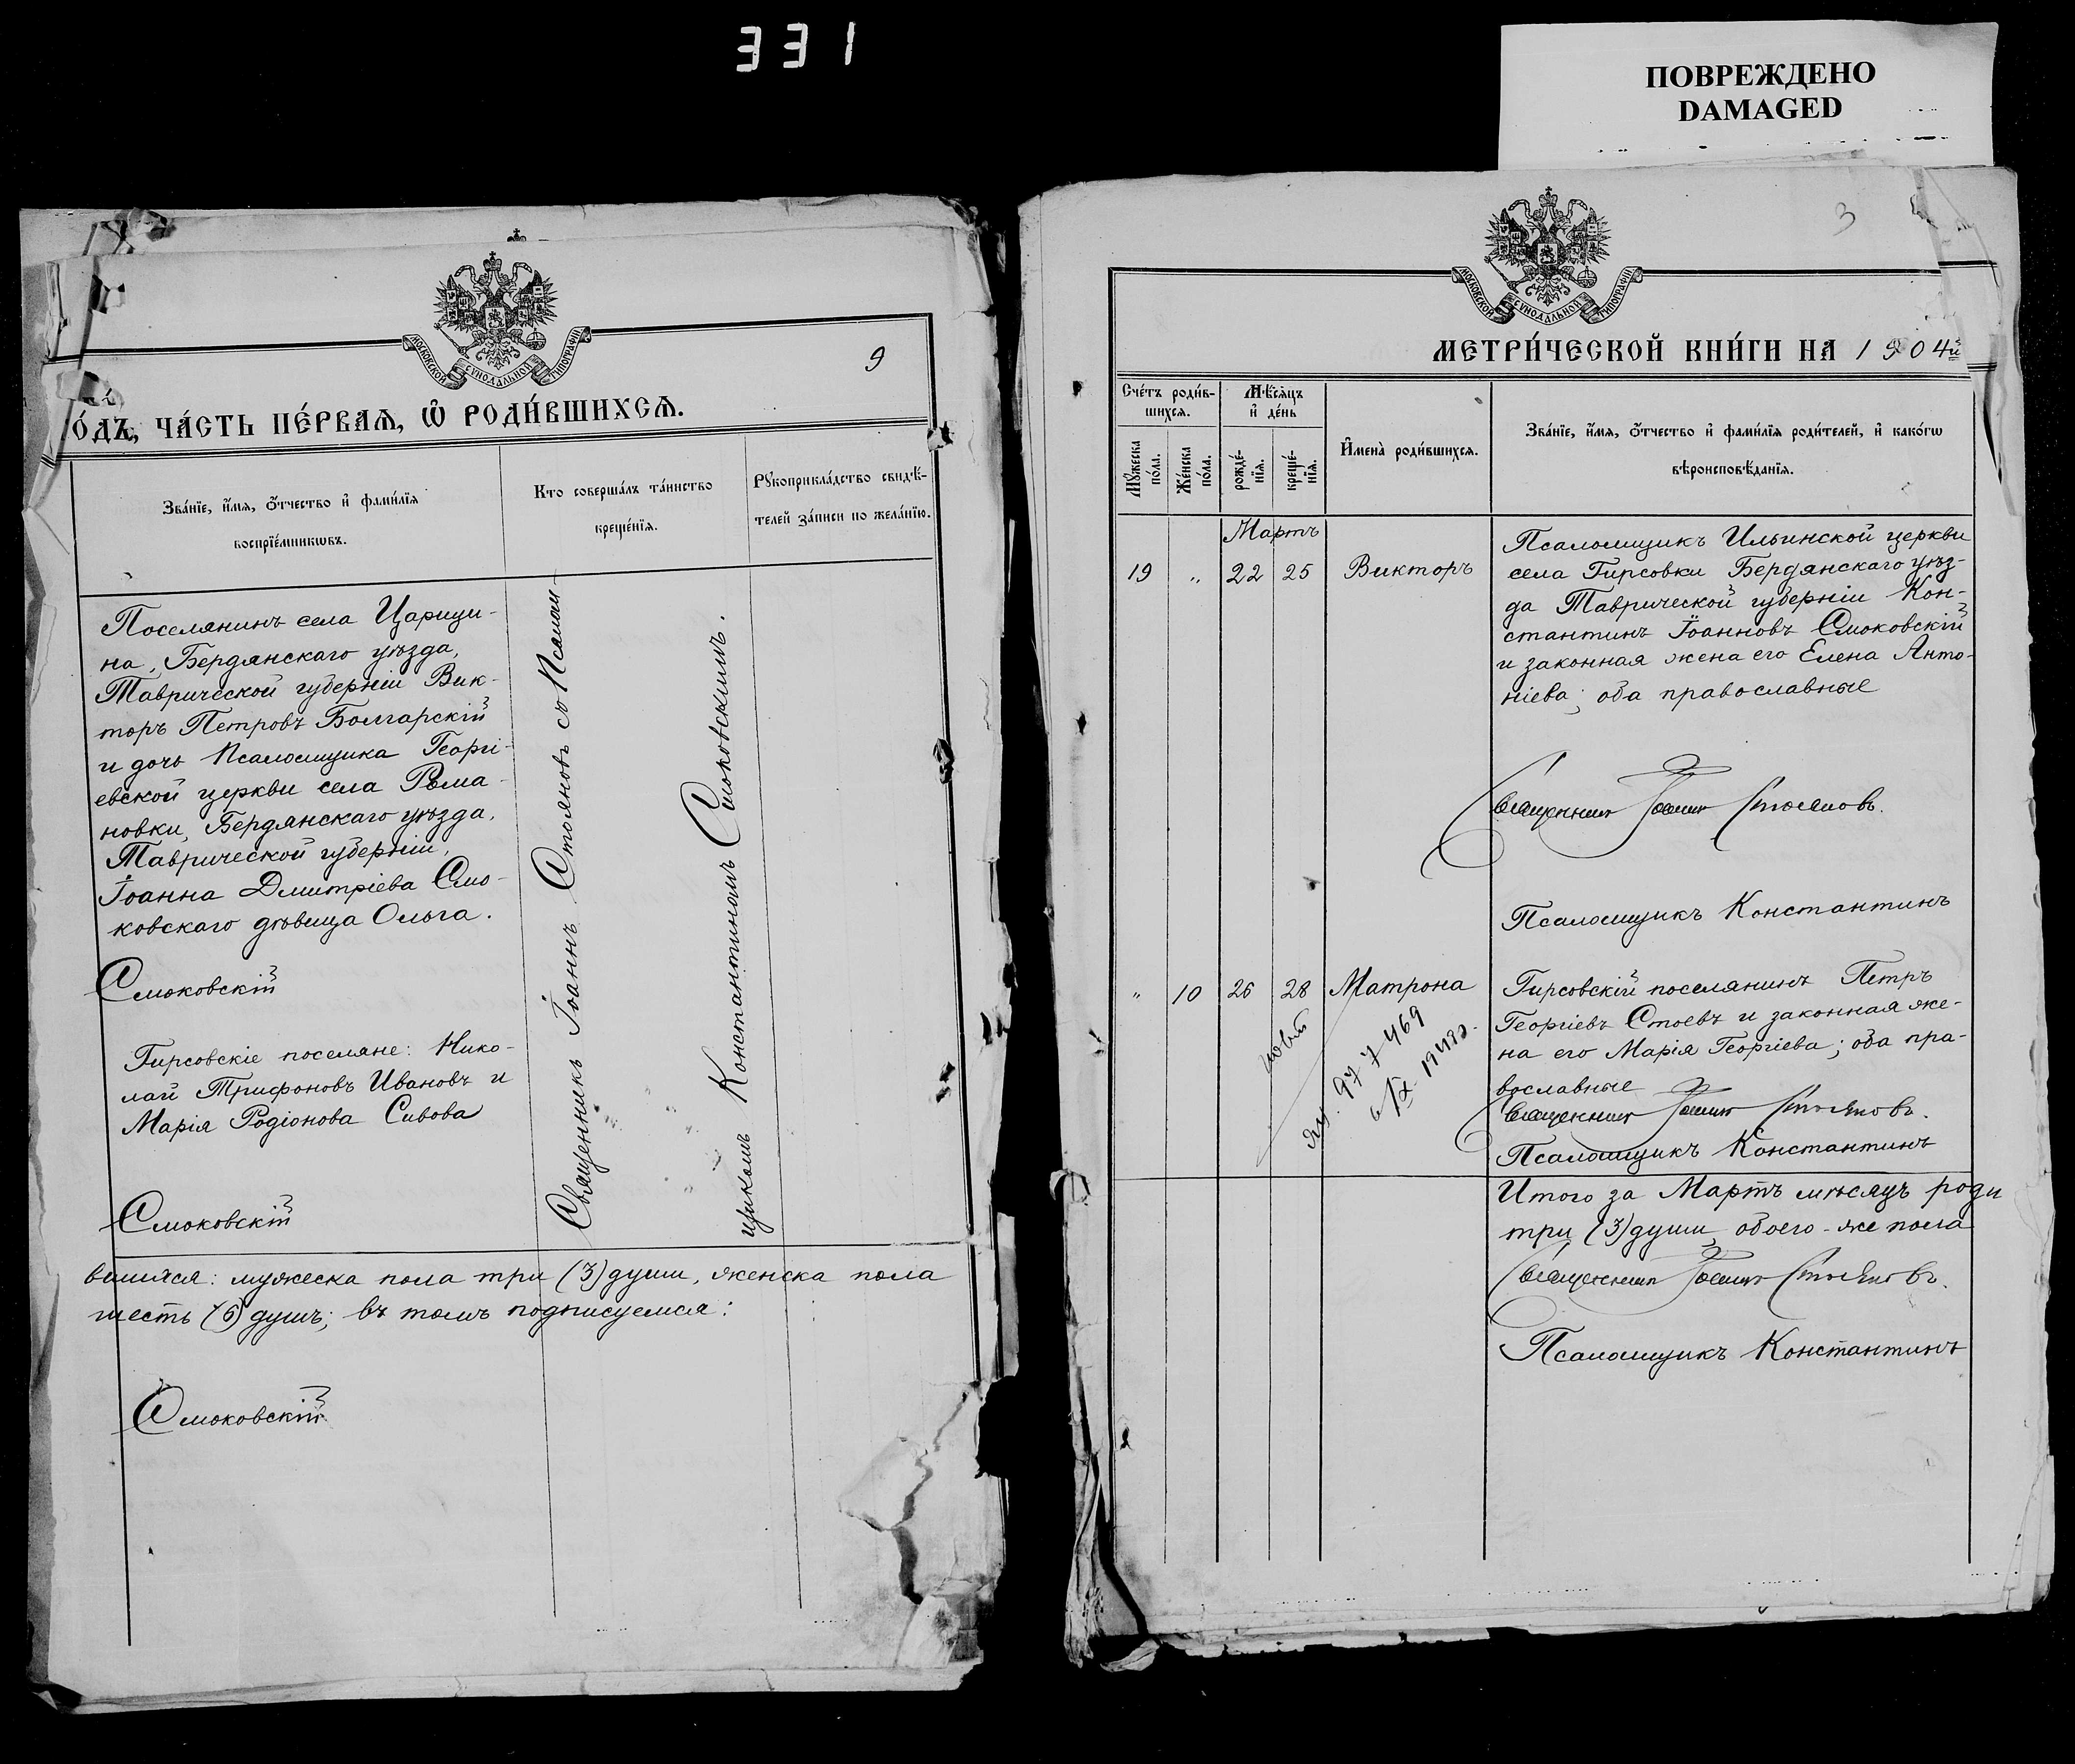 331
ПОВРЕЖДЕНО
DAMAGED
МОСКОВСКОЙ СѴНОДАЛЬНОЙ ТИПОГРАФІИ
9
О́ДЪ, ЧА́СТЬ ПЕ́РВАѦ, Ѡ҆ РОДИ́ВШИХСѦ.
Зва́нїе, и҆́мѧ, ѻ҆́тчество и҆ фами́лїѧ
воспрїе́мникѡвъ.
Кто соверша́лъ та́инство
креще́нїѧ.
Рꙋкоприкла́дство свидѣ́-
телей за́писи по жела́нїю.
Поселянинъ села Царици-
на, Бердянскаго уѣзда,
Таврической губерніи Вик-
торъ Петровъ Болгарскій
и дочь Псаломщика Георгі-
евской церкви села Рома-
новки, Бердянскаго уѣзда,
Таврической губерніи,
Іоанна Дмитріева Смо-
ковскаго дѣвица Ольга.
Смоковскій
Гирсовскіе поселяне: Нико-
лай Трифоновъ Ивановъ и
Марія Родіонова Сивова
Смоковскій
Священникъ Іоаннъ Стояновъ съ Псалом-
щикомъ Константиномъ Смоковскимъ.
вшихся: мужеска пола три (3) души, женска пола
шесть (6) душъ; въ томъ подписуемся:
Смоковскій
3
МОСКОВСКОЙ СѴНОДАЛЬНОЙ ТИПОГРАФІИ
МЕТРИ́ЧЕСКОЙ КНИ́ГИ НА 1904й
Сче́тъ роди́в-
шихсѧ.
Мѣ́сѧцъ
и҆ де́нь
Мꙋ́жеска
по́ла.
Же́нска
по́ла.
рожде́-
нїѧ.
креще́-
нїѧ.
И҆мена̀ роди́вшихсѧ.
Зва́нїе, и҆́мѧ, ѻ҆́тчество и҆ фами́лїѧ роди́телей, и҆ како́гѡ
вѣроисповѣ́данїѧ.
Мартъ
19 „ 22 25 Викторъ
Псаломщикъ Ильинской церкви
села Гирсовки Бердянскаго уѣз-
да Таврической губерніи Кон-
стантинъ Іоанновъ Смоковскій
и законная жена его Елена Анто-
ніева; оба православные
Священникъ Іоаннъ Стояновъ.
Псаломщикъ Константинъ
„ 10 26 28 Матрона
Гирсовскій поселянинъ Петръ
Георгіевъ Стоевъ и законная же-
на его Марія Георгіева; оба пра-
вославные
977469
Священникъ Іоаннъ Стояновъ.
Псаломщикъ Константинъ
Итого за Мартъ мѣсяцъ роди
три (3) души, обоего-же пола
Священникъ Іоаннъ Стояновъ.
Псаломщикъ Константинъ